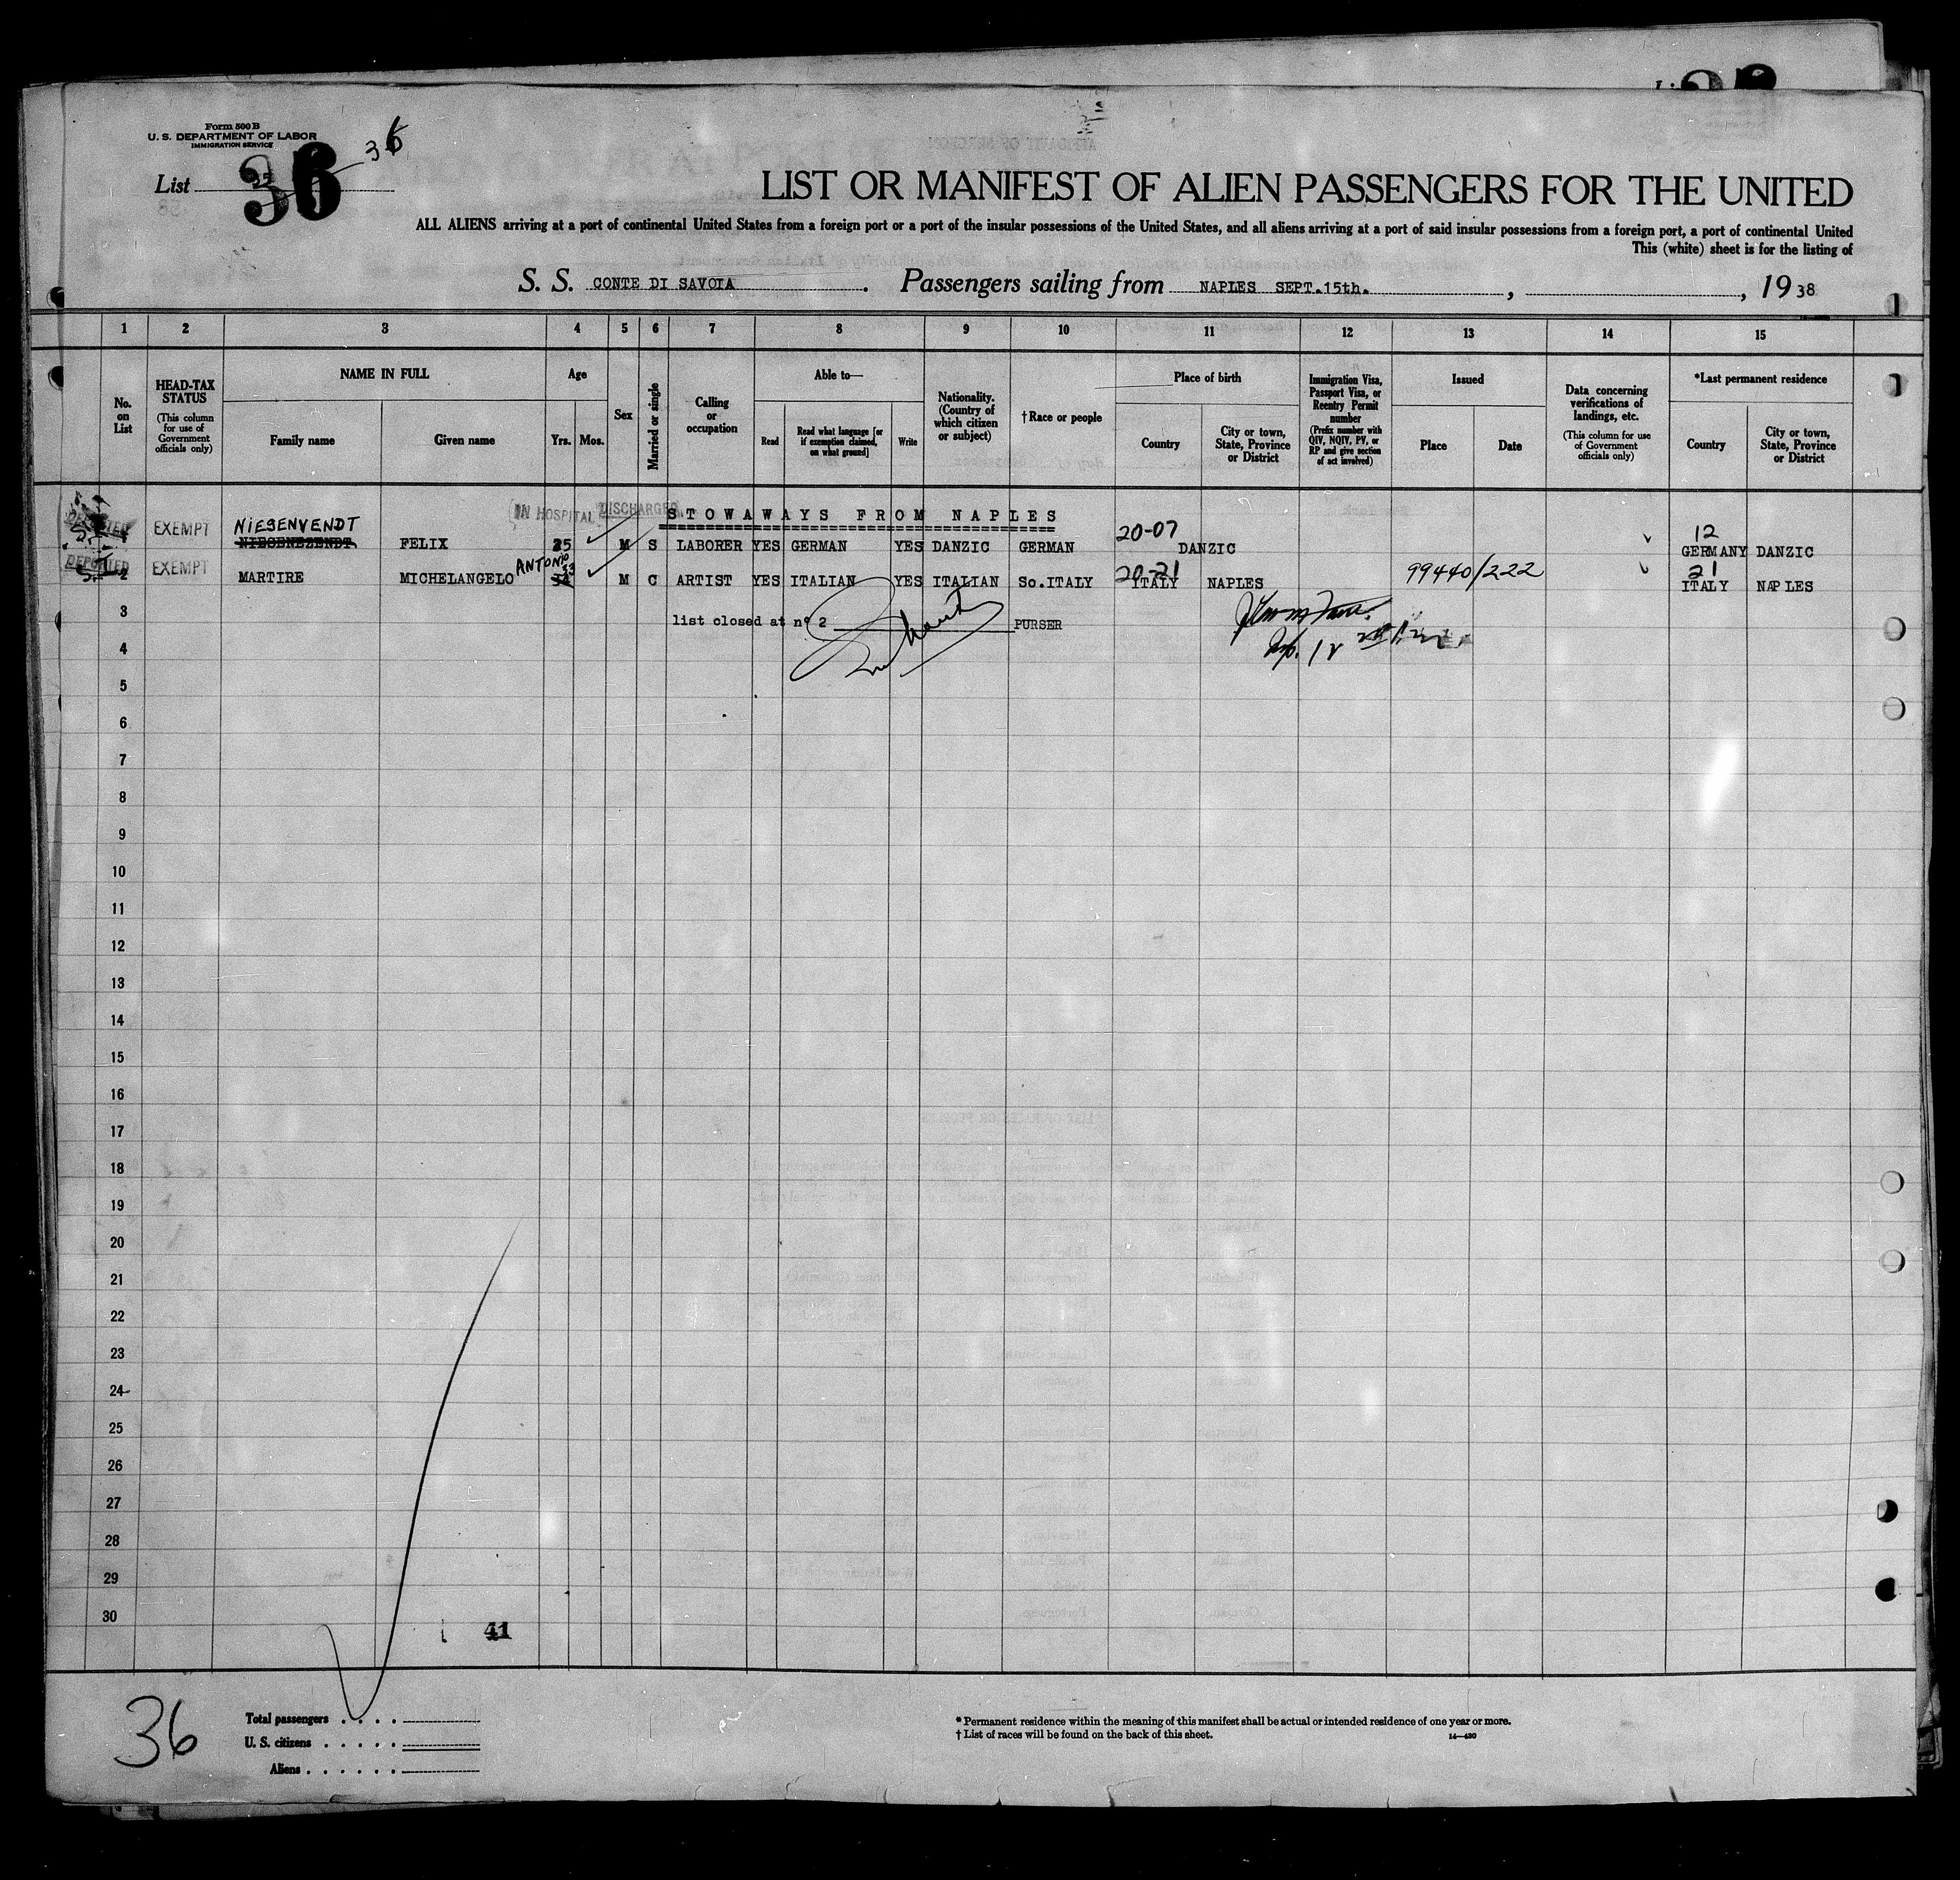 Form 500 B
U. S. DEPARTMENT OF LABOR
IMMIGRATION SERVICE
36
List 36
LIST OR MANIFEST OF ALIEN PASSENGERS FOR THE UNITED
ALL ALIENS arriving at a port of continental United States from a foreign port or a port of the insular possessions of the United States, and all aliens arriving at a port of said insular possessions from a foreign port, a port of continental United
This (white) sheet is for the listing of
S. S. CONTE DI SAVOIA. Passengers sailing from NAPLES SEPT.15th. , , 1938
1 2 3 4 5 6 7 8 9 10 11 12 13 14 15
No. on List
HEAD-TAX STATUS (This column for use of Government officials only)
NAME IN FULL
Family name Given name
Age
Yrs. Mos.
Sex
Married or single
Calling or occupation
Able to—
Read
Read what language [or if exemption claimed, on what ground]
Write
Nationality. (Country of which citizen or subject)
†Race or people
Place of birth
Country
City or town, State, Province or District
Immigration Visa, Passport Visa, or Reentry Permit number (Prefix number with QIV, NQIV, PV, or RP and give section of act involved)
Issued
Place Date
Data concerning verifications of landings, etc. (This column for use of Government officials only)
*Last permanent residence
Country
City or town, State, Province or District
IN HOSPITAL DISCHARGED
STOWAWAYS FROM NAPLES
EXEMPT NIESENVENDT 20-07 12
NIESENEZENDT FELIX 25 M S LABORER YES GERMAN YES DANZIC GERMAN DANZIC GERMANY DANZIC
DEPORTED EXEMPT ANTONIO 33 20-21 99440/222 21
2 MARTIRE MICHELANGELO 34 M C ARTIST YES ITALIAN YES ITALIAN So.ITALY ITALY NAPLES ITALY NAPLES
3 list closed at n° 2 PURSER
4
5
6
7
8
9
10
11
12
13
14
15
16
17
18
19
20
21
22
23
24
25
26
27
28
29
30
41
36
Total passengers . . . .
U. S. citizens . . . . .
Aliens . . . . . .
* Permanent residence within the meaning of this manifest shall be actual or intended residence of one year or more.
† List of races will be found on the back of this sheet. 14—430